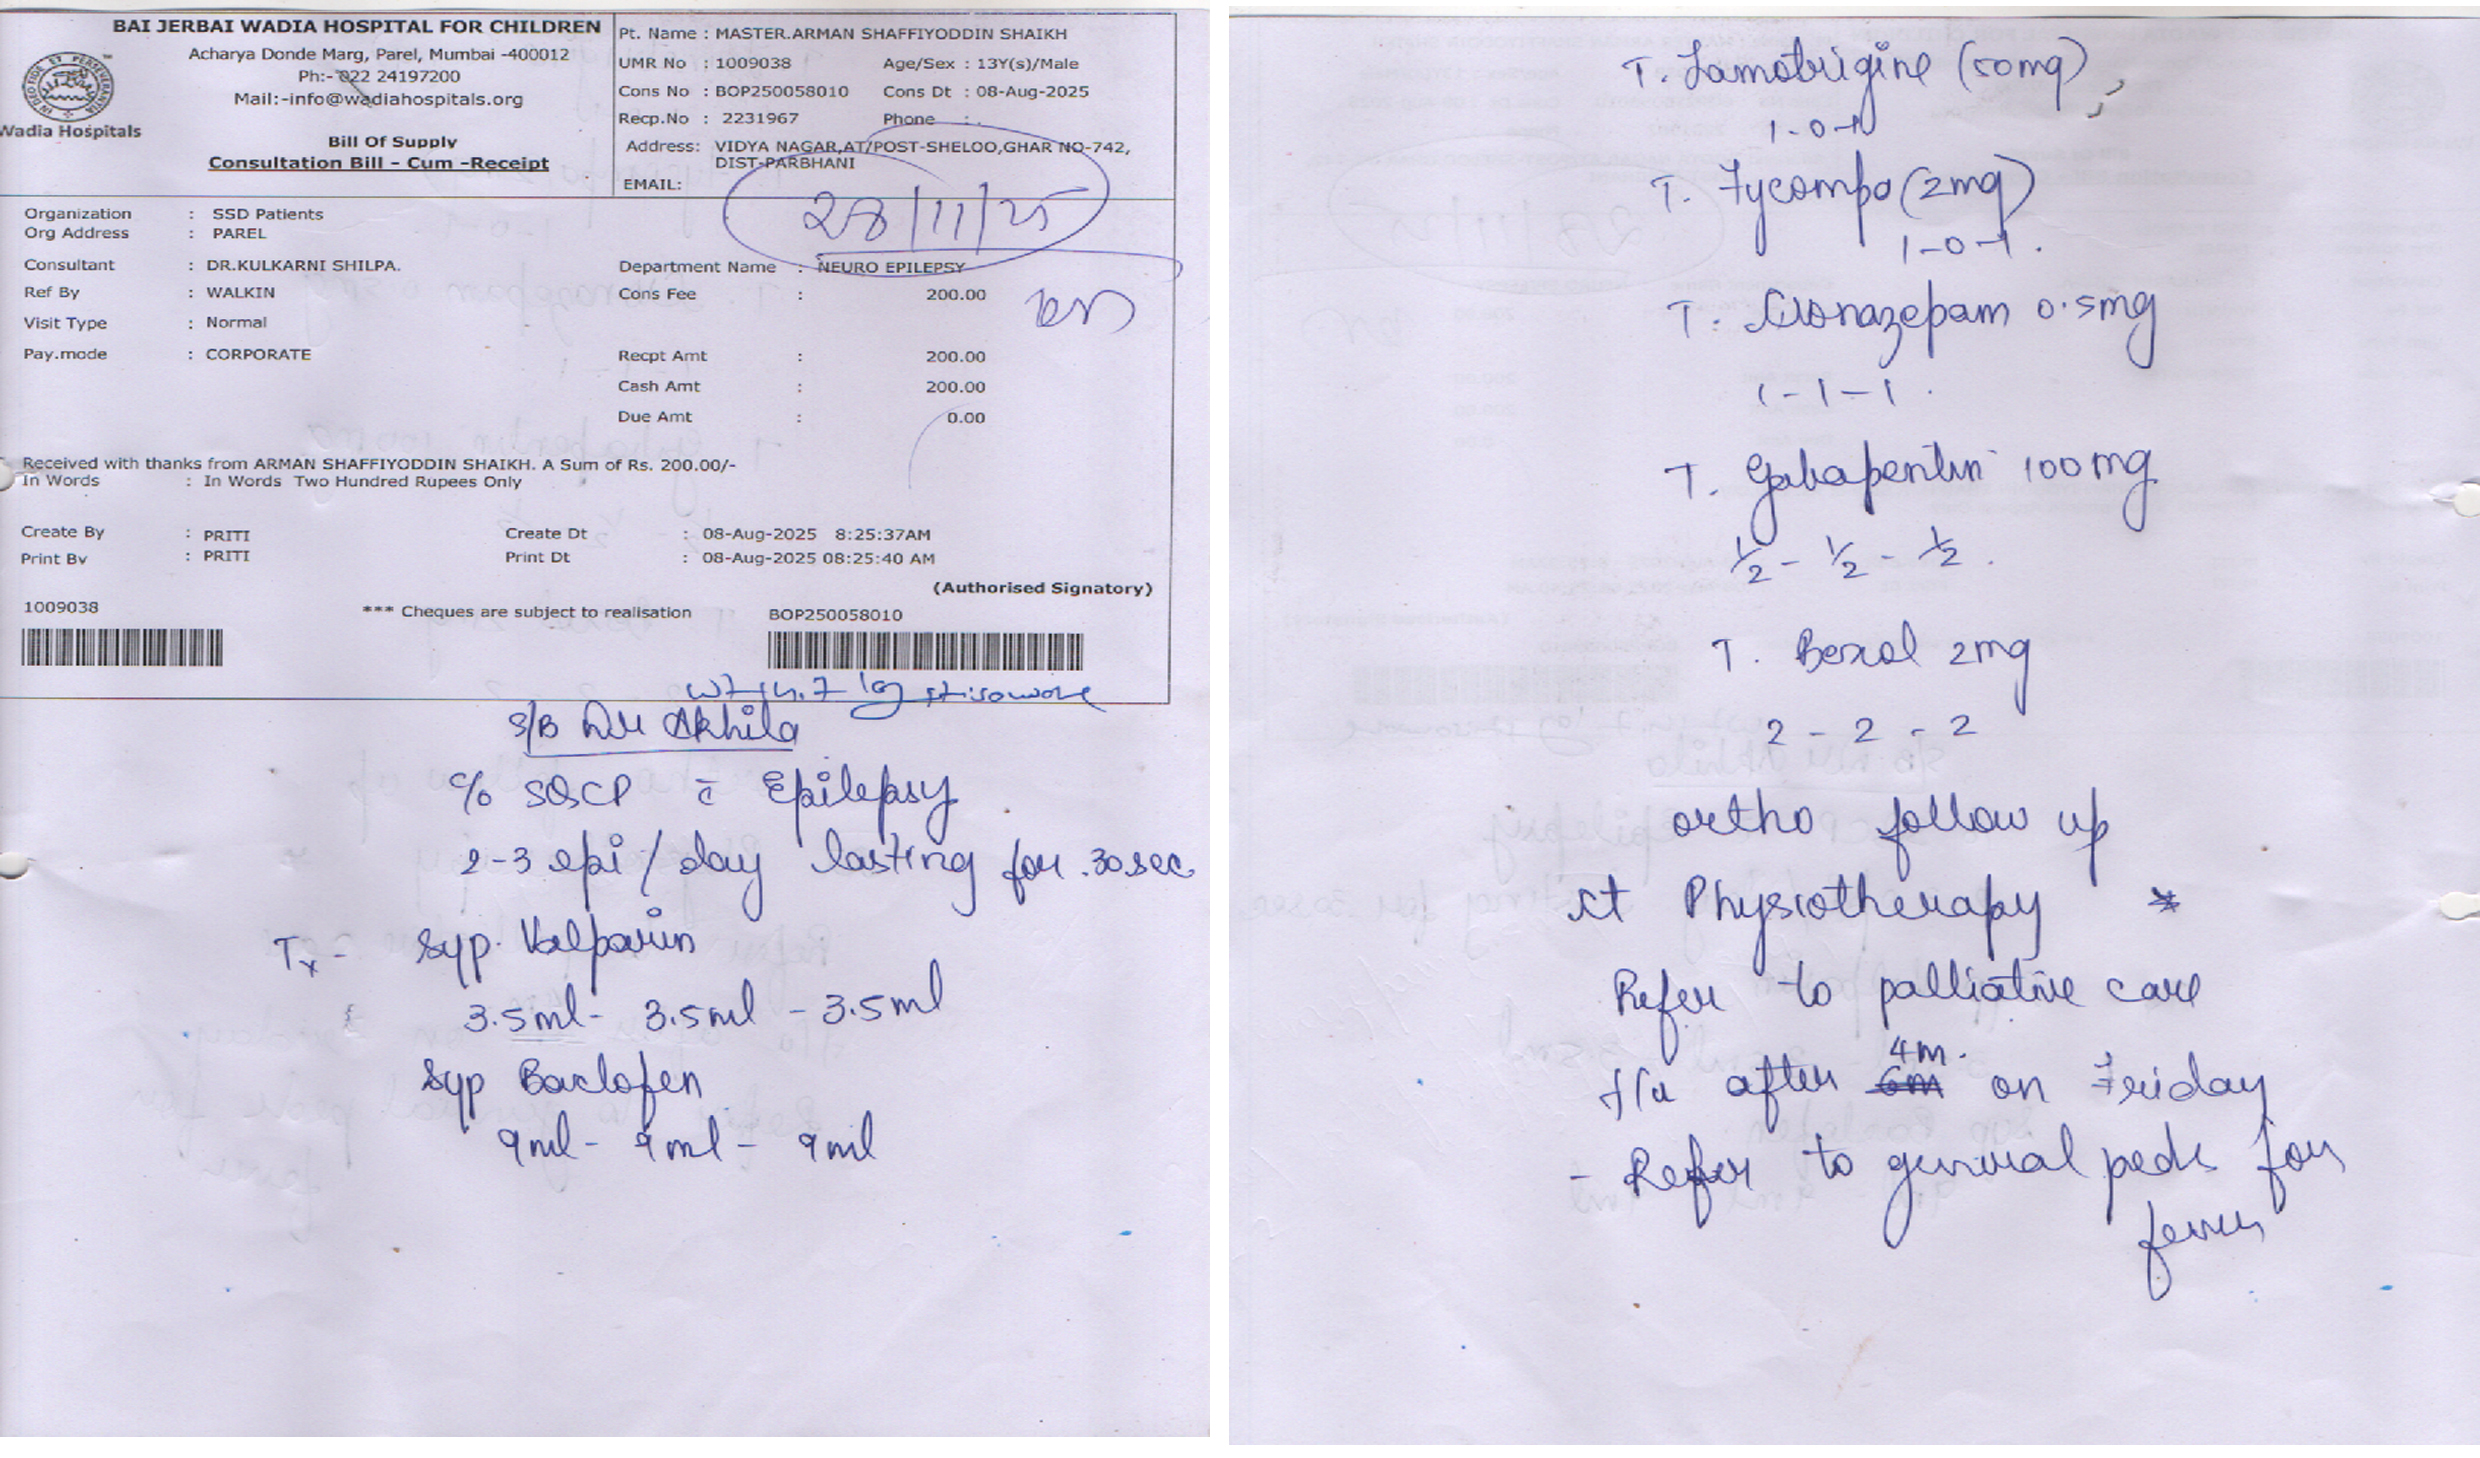 BAI JERBAI WADIA HOSPITAL FOR CHILDREN
Acharya Donde Marg, Parel, Mumbai -400012
Ph:- 022 24197200
Mail:-info@wadiahospitals.org
Wadia Hospitals
Bill Of Supply
Consultation Bill - Cum -Receipt
Pt. Name : MASTER.ARMAN SHAFFIYODDIN SHAIKH
UMR No : 1009038 Age/Sex : 13Y(s)/Male
Cons No : BOP250058010 Cons Dt : 08-Aug-2025
Recp.No : 2231967 Phone : .
Address: VIDYA NAGAR,AT/POST-SHELOO,GHAR NO-742,
DIST-PARBHANI
EMAIL:
28/11/25
Organization : SSD Patients
Org Address : PAREL
Consultant : DR.KULKARNI SHILPA. Department Name : NEURO EPILEPSY
Ref By : WALKIN Cons Fee : 200.00
Visit Type : Normal
Pay.mode : CORPORATE Recpt Amt : 200.00
Cash Amt : 200.00
Due Amt : 0.00
Received with thanks from ARMAN SHAFFIYODDIN SHAIKH. A Sum of Rs. 200.00/-
In Words : In Words Two Hundred Rupees Only
Create By : PRITI Create Dt : 08-Aug-2025 8:25:37AM
Print By : PRITI Print Dt : 08-Aug-2025 08:25:40 AM
(Authorised Signatory)
1009038 *** Cheques are subject to realisation BOP250058010
wt 14.7 kg
S/B Dr Akhila
c/o SQCP c̄ Epilepsy
2-3 epi/day lasting for 30sec
Tx - Syp. Valparin
3.5ml - 3.5ml - 3.5ml
Syp Baclofen
9ml - 9ml - 9ml
T. Lamotrigine (50mg)
1-0-1
T. Fycompa (2mg)
1-0-1.
T. Clonazepam 0.5mg
1-1-1.
T. Gabapentin 100mg
½ - ½ - ½.
T. Bexol 2mg
2 - 2 - 2
ortho follow up
ct Physiotherapy *
Refer to palliative care
4m.
f/u after 6m on Friday
- Refer to general peds for
fever